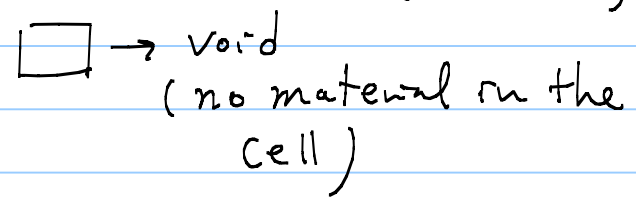 → void
(no material in the
cell)